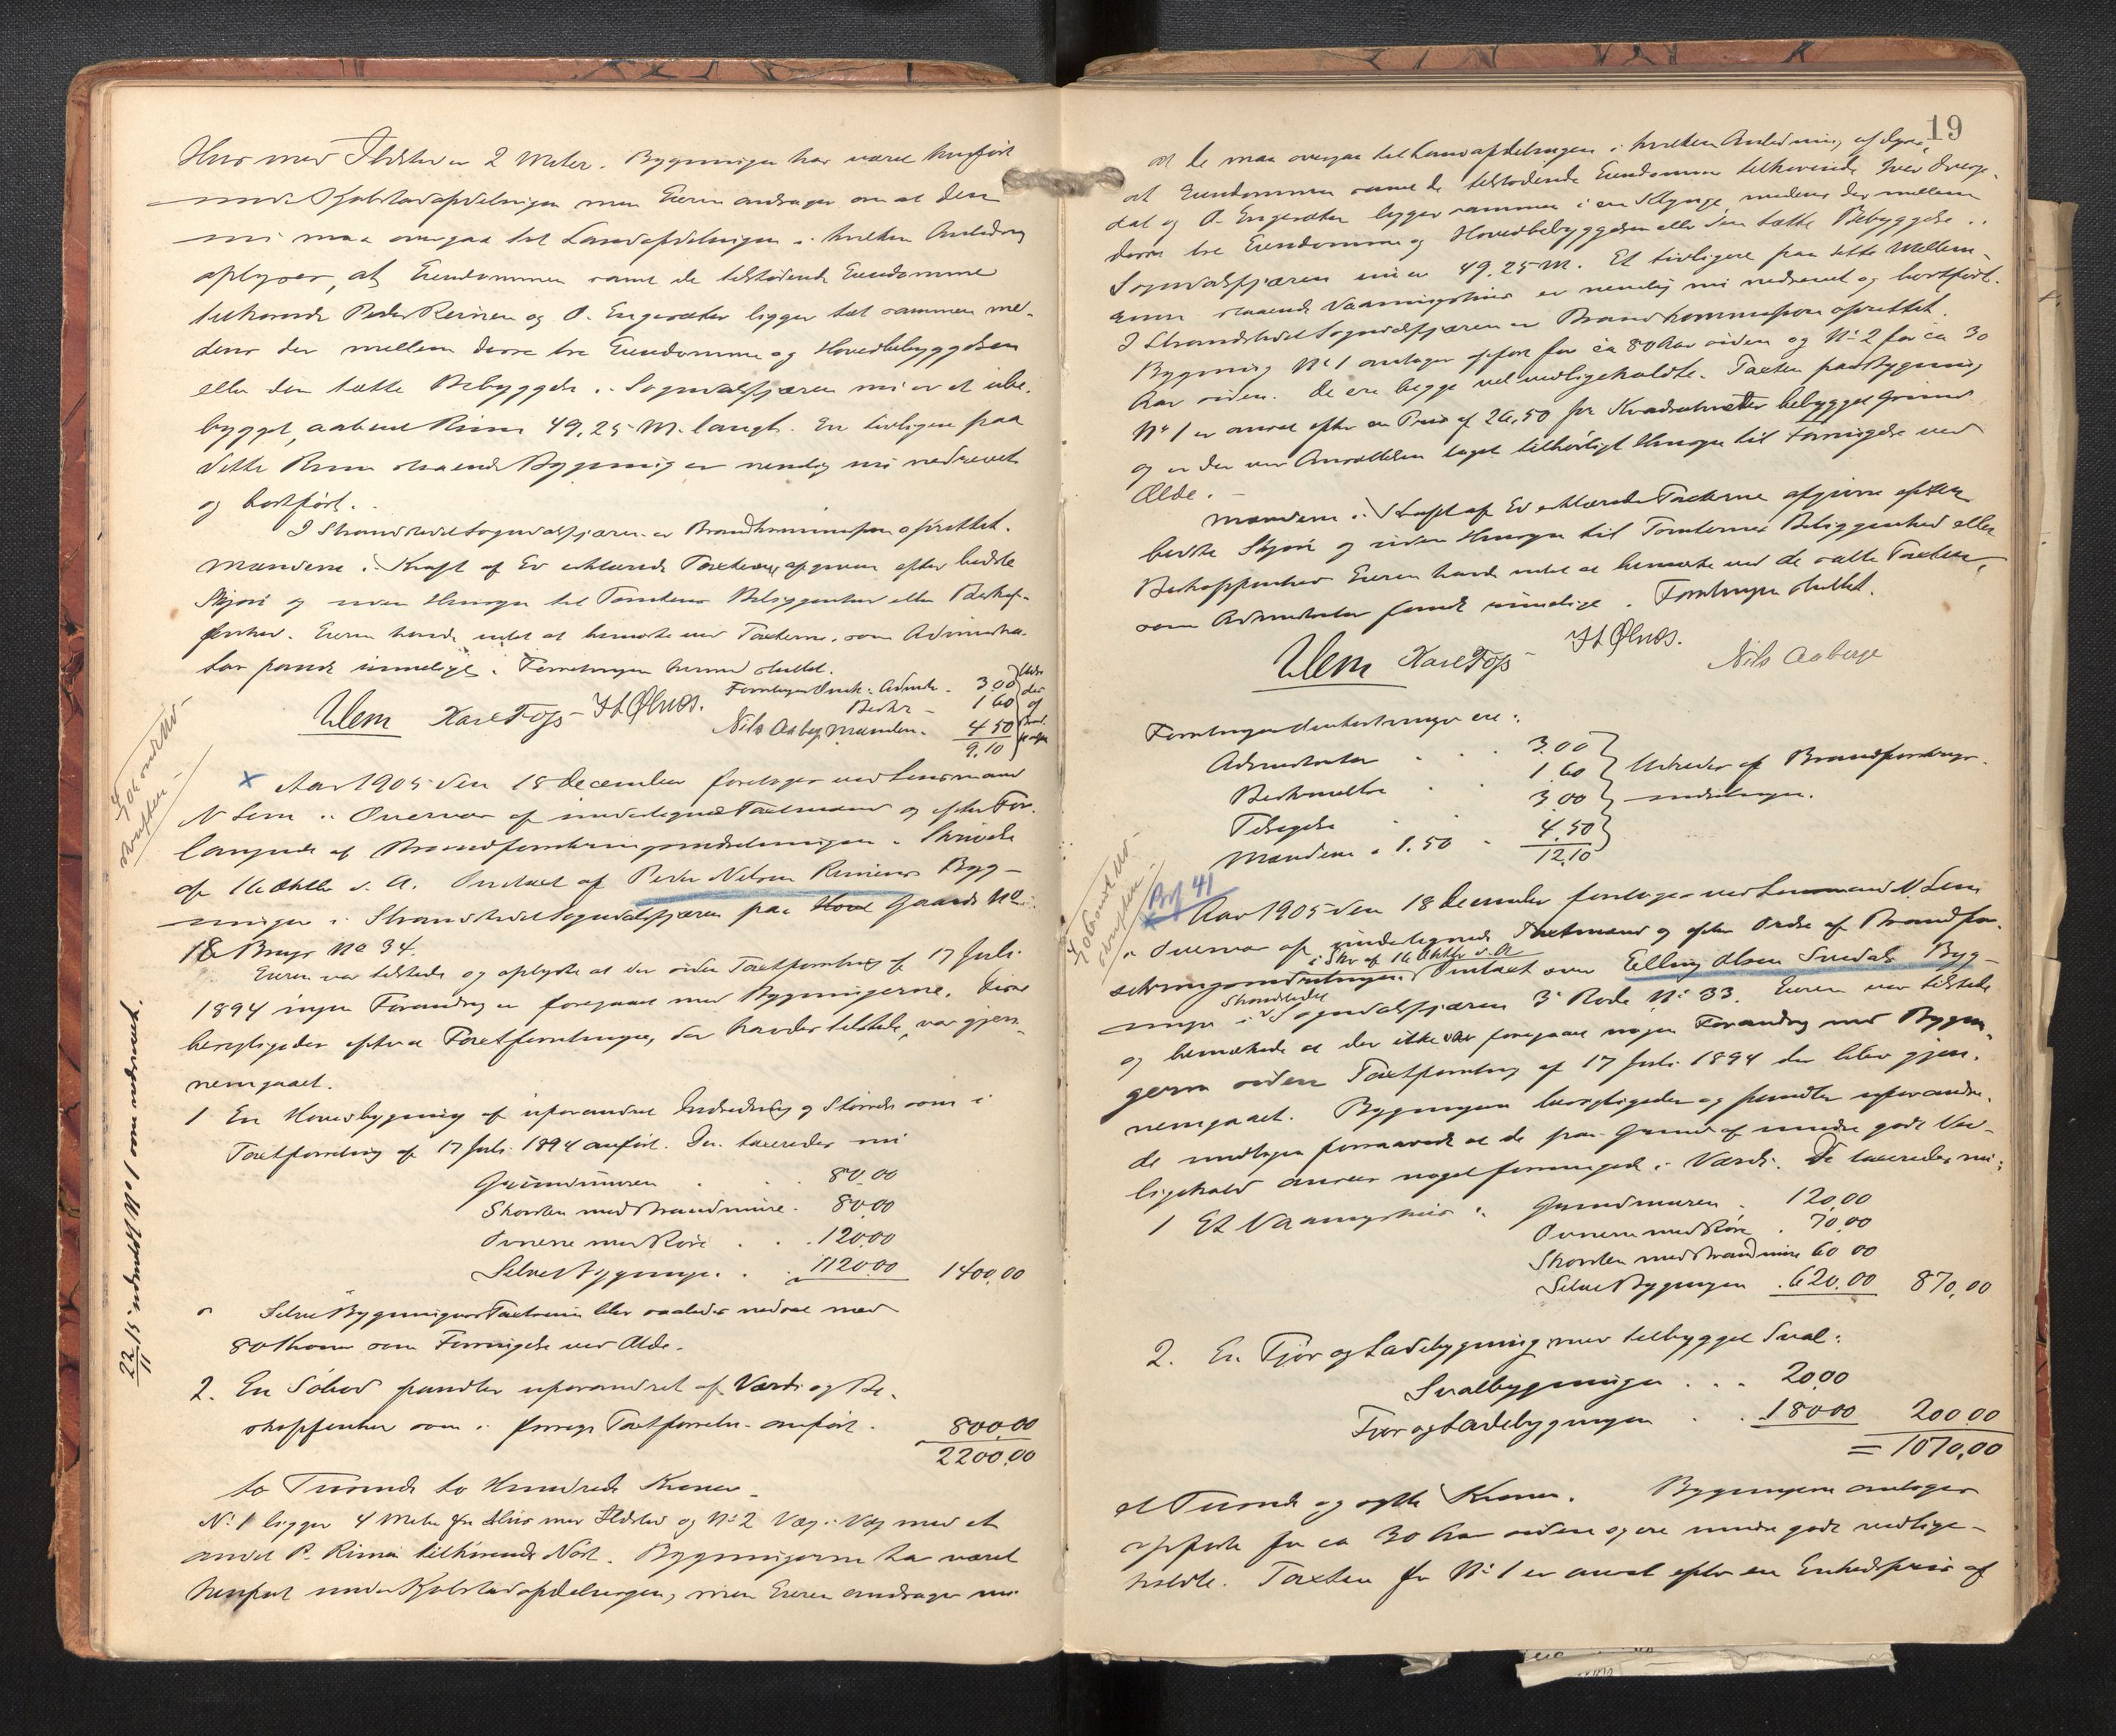 Hus med Ildsted er 2 Meter. Bygningen har været henført
under Kjøbstadafdelingen men Eieren andrager om at den
nu maa overgaa til Landafdelingen i hvilken Anledning
oplyses, at Eiendommen samt de tilstødende Eiendomme
tilhørende Peder Reinen og O. Engesæter ligger tæt sammen me-
dens der mellem disse tre Eiendomme og Hovedbebyggelsen
eller den tætte Bebyggelse i Sogndalsfjæren nu er et ube-
bygget, aabent Rum 49,25 M. langt. En tidligere paa
dette Rum staaende Bygning er nemlig nu nedrevet
og bortført.
I Strandstedet Sogndalsfjæren er Brandkommission oprettet.
Mændene i Kraft af Ed erklærede Taxterne afgivne efter bedste
Skjøn og uden Hensyn til Tomtens Beliggenhed eller Beskaf-
fenhed. Eieren havde intet at bemærke ved Taxterne, som Administra-
tor fandt rimelige. Forretningen hermed sluttet.
Forretningen Omk: Admstr. 3.00
Beskr - 1 60
Mændene. 4 50
9.10
NLem Karl Foss H L Ølnes. Nils Aaberge
Lokomstud-
skriften
× Aar 1905 den 18 December foretoges ved Lensmand
N Lem i Overvær af undertegnede Taxtmænd og efter For-
langende af Brandforsikringsindretningen i Skrivelse
af 16 Oktbr d. A. Omtaxt af Peder Nilsen Reinens Byg-
ninger i Strandstedet Sogndalsfjæren paa Gaards No
18 Brugs No 34.
Eieren var tilstede og oplyste at der siden Taxtforretning af 17 Juli
1894 ingen Forandring er foregaaet med Bygningerne. Disse
besigtigedes efterat Taxtforretningen, der havdes tilstede, var gjen-
nemgaaet.
1 En Hovedbygning af uforandret Indredning og Størrelse som i
Taxtforretning af 17 Juli 1894 anført. Den taxeredes nu
Grundmuren 80.00
Skorsten med Brandmure. 80.00
Ovnene med Rør 120.00
Selve Bygningen 1120.00 1400.00
Selve Bygningens Taxtsum blev saaledes nedsat med
80 Kroner som Forringelse ved Ælde.
2. En Søbod fandtes uforandret af Værdi og Be-
skaffenhed som i forrige Taxtforretn. anført. 800.00
2200.00
to Tusinde to Hundrede Kroner.
No 1 ligger 4 Meter fra Hus med Ildsted og No 2 Væg i Væg med et
andet P. Reinen tilhørende Nøst. Bygningerne har været
henført under Kjøbstadafdelingen, men Eieren andrager nu
19
at de maa overgaa til Landafdelingen i hvilken Anledning oplyses
at Eiendommen samt de tilstødende Eiendomme tilhørende
dal og O. Engesæter ligger sammen i en Klynge medens der mellem
disse tre Eiendomme og Hovedbebyggelsen eller den tætte Bebyggelse i
Sogndalsfjæren nu er 49.25 M. Et tidligere paa dette Mellem-
rum staaende Vaaningshus er nemlig nu nedrevet og bortført.
I Strandstedet Sogndalsfjæren er Brandkommission oprettet.
Bygning No 1 antages opført for ca 80 Aar siden og No 2 for ca 30
Aar siden. De ere begge vel vedligeholdte. Taxten paa Bygning
No 1 er ansat efter en Pris af 26,50 pr Kvadratmeter bebygget Grund
og er der ved Ansættelsen taget tilbørligt Hensyn til Forringelse ved
Ælde.
Mændene i Kraft af Ed erklærede Taxterne afgivne efter
bedste Skjøn og uden Hensyn til Tomternes Beliggenhed eller
Beskaffenhed Eieren havde intet at bemærke ved de satte Taxter,
som Administrator fandt rimelige. Forretningen sluttet.
NLem Karl Foss H L Ølnes. Nils Aaberge
Forretningens Omkostninger ere:
Administrator 3.00
Beskrivelse 1.60
Tilsigelse 3.00
Mændene a 1.50 4.50
12.10
Udredes af Brandforsikrings-
indretningen.
Bf 41
× Aar 1905 den 18 December foretoges ved Lensmand N. Lem
i Overvær af undertegnede Taxtmænd og efter Ordre af Brandfor-
sikringsindretningen i Skr af 16 Oktbr d. A. Omtaxt over Elling Olsen Svedals Byg-
ninger i Strandstedet Sogndalsfjæren 3' Rode No 33. Eieren var tilstede
og bemærkede at der ikke var foregaaet nogen Forandring med Bygnin-
gerne siden Taxtforretning af 17 Juli 1894 der blev gjen-
nemgaaet. Bygningerne besigtigedes og fandtes uforandre-
de undtagen forsaavidt at de paa Grund af mindre godt Ved-
ligehold ansees noget forringede i Værdi. De taxeredes nu:
1 Et Vaaningshus: Grundmuren 120.00
Ovnene med Rør 70.00
Skorsten med Brandmure 60 00
Selve Bygningen 620.00 870,00
2. En Fjøs og Ladebygning med tilbygget Sval:
Svalbygningen 20.00
Fjøs og Ladebygningen 180.00 200 00
= 1070,00
et Tusinde og sytti Kroner. Bygningerne antages
opførte for ca 30 Aar siden og ere mindre godt vedlige-
holdte. Taxten for No 1 er ansat efter en Enhedspris af